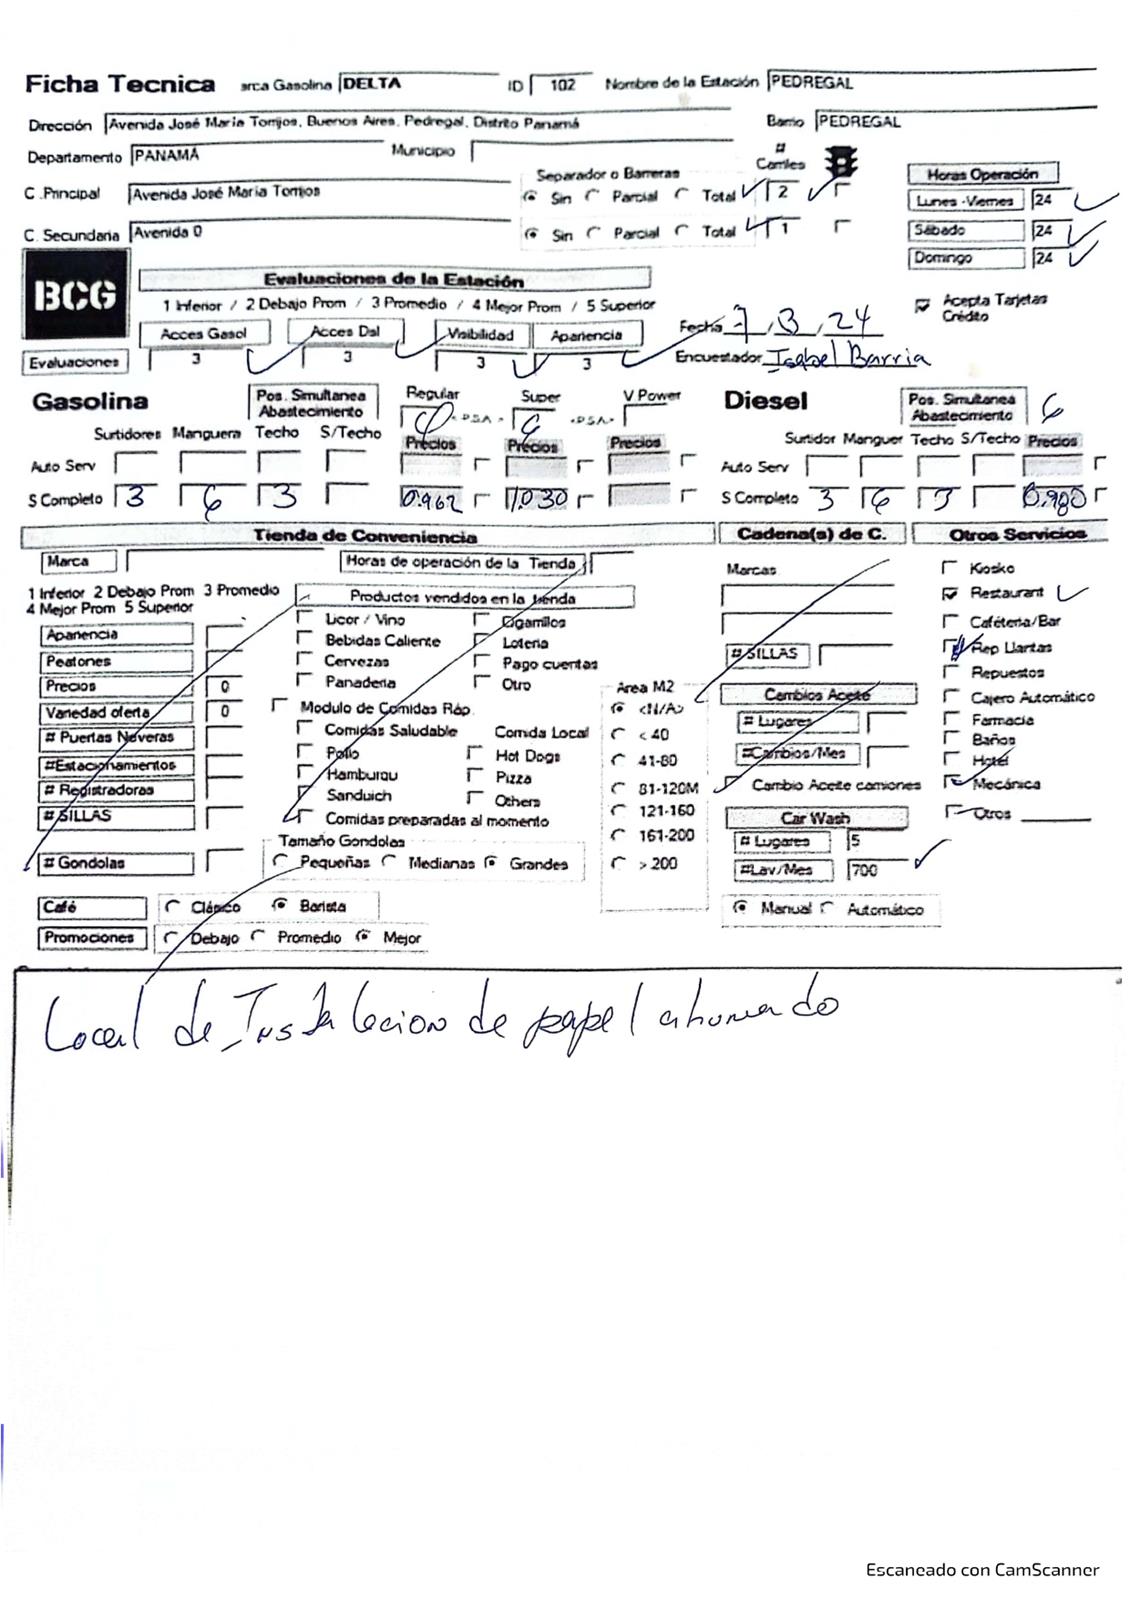 Ficha Tecnica arca Gasolina DELTA ID 102 Nombre de la Estación PEDREGAL
Dirección Avenida José María Torrijos, Buenos Aires, Pedregal, Distrito Panamá Barrio PEDREGAL
Departamento PANAMÁ Municipio # Carriles
Separador o Barreras Horas Operación
C .Principal Avenida José María Torrijos Sin Parcial Total 2 Lunes -Viernes 24
C. Secundaria Avenida 0 Sin Parcial Total 1 Sábado 24
Domingo 24
BCG
Evaluaciones de la Estación
1 Inferior / 2 Debajo Prom / 3 Promedio / 4 Mejor Prom / 5 Superior
Acepta Tarjetas Crédito
Acces Gasol Acces Dsl Visibilidad Apariencia Fecha 7, 3, 24
Evaluaciones 3 3 3 3 Encuestador Isabel Barria
Gasolina Pos. Simultanea Abastecimiento Regular Super V Power Diesel Pos. Simultanea Abastecimiento 6
6 <PSA> 6 <PSA>
Surtidores Manguera Techo S/Techo Precios Precios Precios Surtidor Manguer Techo S/Techo Precios
Auto Serv Auto Serv
S Completo 3 6 3 0.962 1.030 S Completo 3 6 3 0.980
Tienda de Conveniencia Cadena(s) de C. Otros Servicios
Marca Horas de operación de la Tienda Marcas Kosko
1 Inferior 2 Debajo Prom 3 Promedio Productos vendidos en la tienda Restaurant
4 Mejor Prom 5 Superior
Licor / Vino Cigarrillos Cafétería/Bar
Apariencia Bebidas Caliente Loteria Rep Llantas
Peatones Cervezas Pago cuentas # SILLAS Repuestos
Precios 0 Panaderia Otro Area M2 Cambios Aceite Cajero Automático
Variedad oferta 0 Modulo de Comidas Ráp. <N/A> # Lugares Farmacia
# Puertas Neveras Comidas Saludable Comida Local < 40 Baños
#Estacionamientos Pollo Hot Dogs 41-80 #Cambios/Mes Hotel
# Registradoras Hamburqu Pizza 81-120M Cambio Aceite camiones Mecánica
# SILLAS Sanduich Others 121-160 Car Wash Otros
Comidas preparadas al momento
Tamaño Gondolas 161-200 # Lugares 5
# Gondolas Pequeñas Medianas Grandes > 200 #Lav/Mes 700
Café Clásico Barista Manual Automático
Promociones Debajo Promedio Mejor
Local de Instalacion de papel ahumado
Escaneado con CamScanner